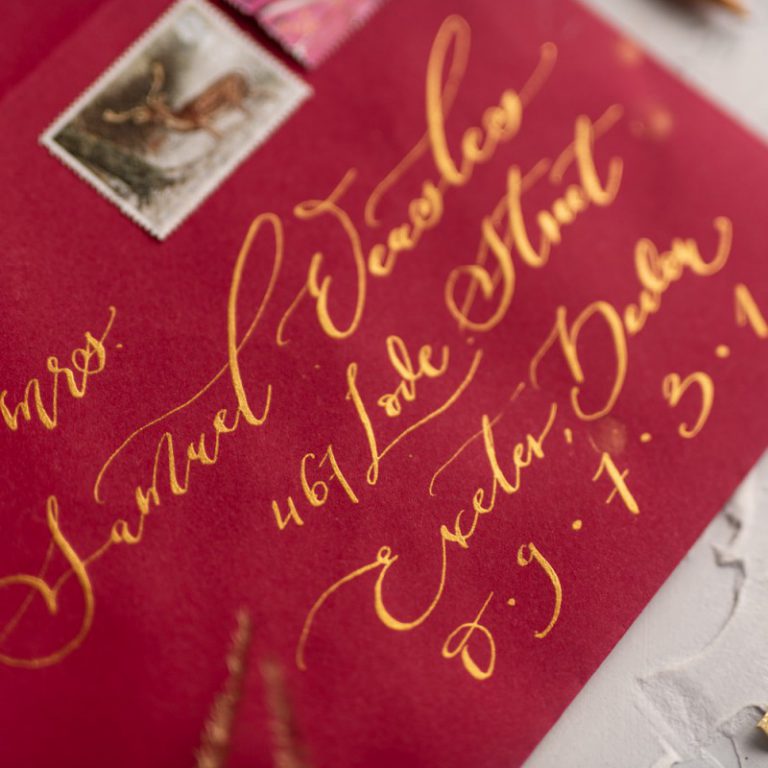 mrs.
Samuel Deasles
467 Lode Street
Exeter, Devlon
8 . 9 . 7 . 3 . 1